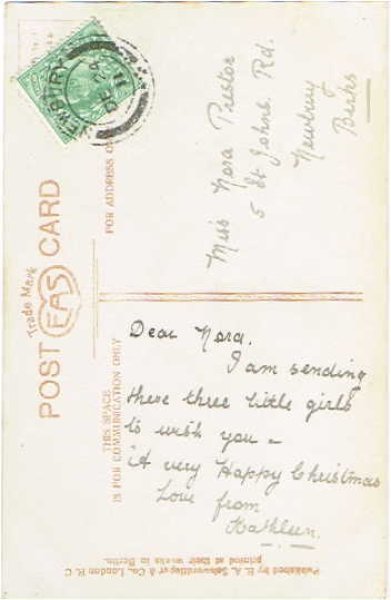 NEWBURY
DE 24
11
POST CARD
Trade Mark
EAS
FOR ADDRESS
THIS SPACE
IS FOR COMMUNICATION ONLY
Miss Nora Prestor
5 St Johns Rd.
Newbury
Berks
Dear Nora.
I am sending
these three little girls
to wish you –
"A very Happy Christmas
Love from
Kathleen.
Published by E. A. Schwerdtfeger & Co., London E. C.
printed at their works in Berlin.